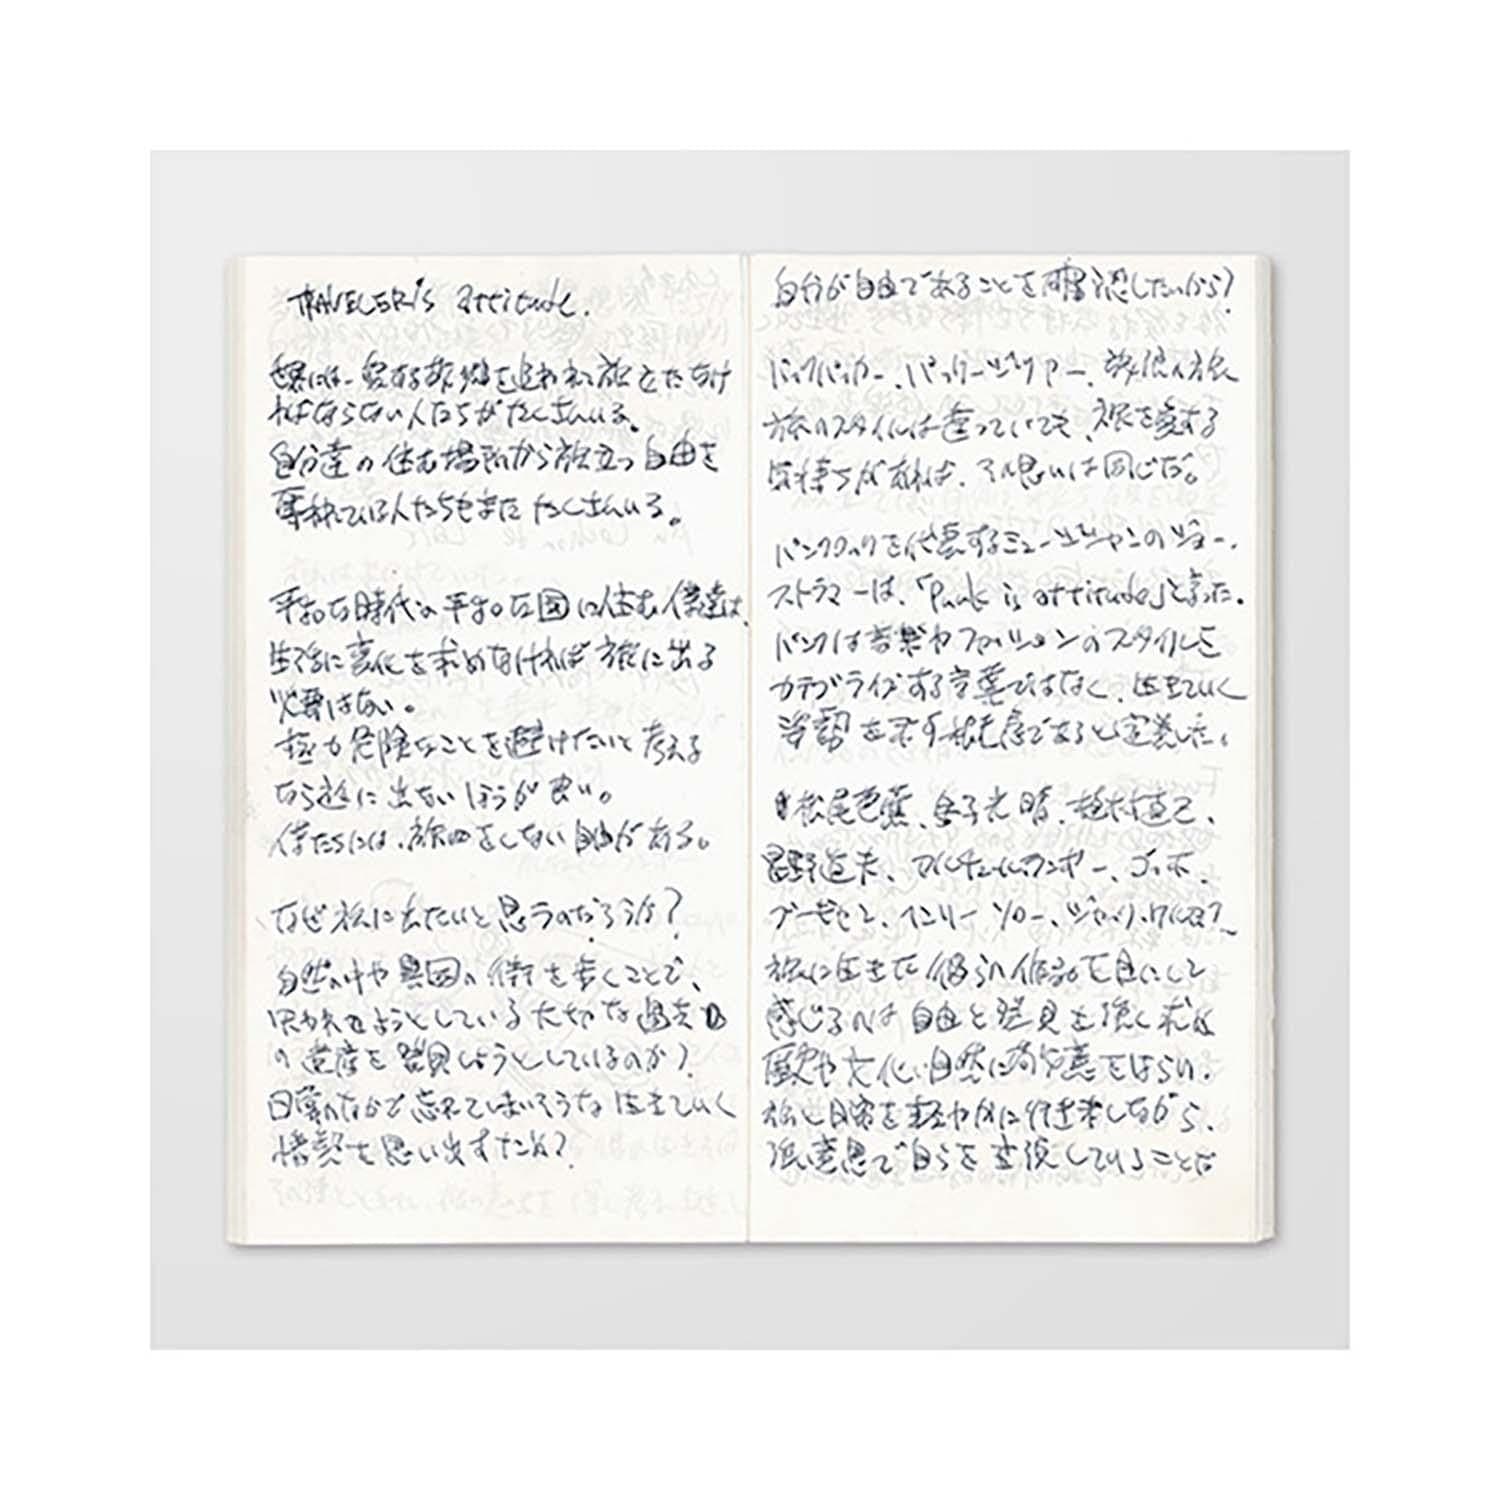 TRAVELER's attitude.
世界には、愛する故郷を追われて旅立たなけ
ればならない人たちがたくさんいる。
自分達の住む場所から旅立つ自由を
奪われている人たちもまた たくさんいる。
平和な時代の平和な国に住む僕達は、
生活に変化を求めなければ旅に出る
必要はない。
極力危険なことを避けたいと考える
なら旅に出ないほうが良い。
僕たちには、旅をしない自由がある。
なぜ旅に出たいと思うのだろうか?
自然の中や異国の街を歩くことで、
失われようとしている大切な過去
の遺産を発見しようとしているのか?
日常のなかで忘れてしまいそうな生きていく
情熱を思い出すため?
自分が自由であることを確認したいから?
バックパッカー、パッケージツアー、放浪の旅
旅のスタイルは違っていても、旅を愛する
気持ちがあれば、その思いは同じだ。
パンクロックを代表するミュージシャンのジョー・
ストラマーは、「Punk is attitude」と言った。
パンクは音楽やファッションのスタイルを
カテゴライズする言葉ではなく、生きていく
姿勢を示す態度であると定義した。
松尾芭蕉、金子光晴、植村直己、
星野道夫、アルチュール・ランボー、ゴッホ、
ゴーギャン、ヘンリー・ソロー、ジャック・ケルアック
旅に生きた彼らの作品を目にして
感じるのは自由と発見を強く求め
歴史や文化、自然に敬意をはらい、
旅と日常を軽やかに行き来しながら、
強い意思で自らを表現していることだ